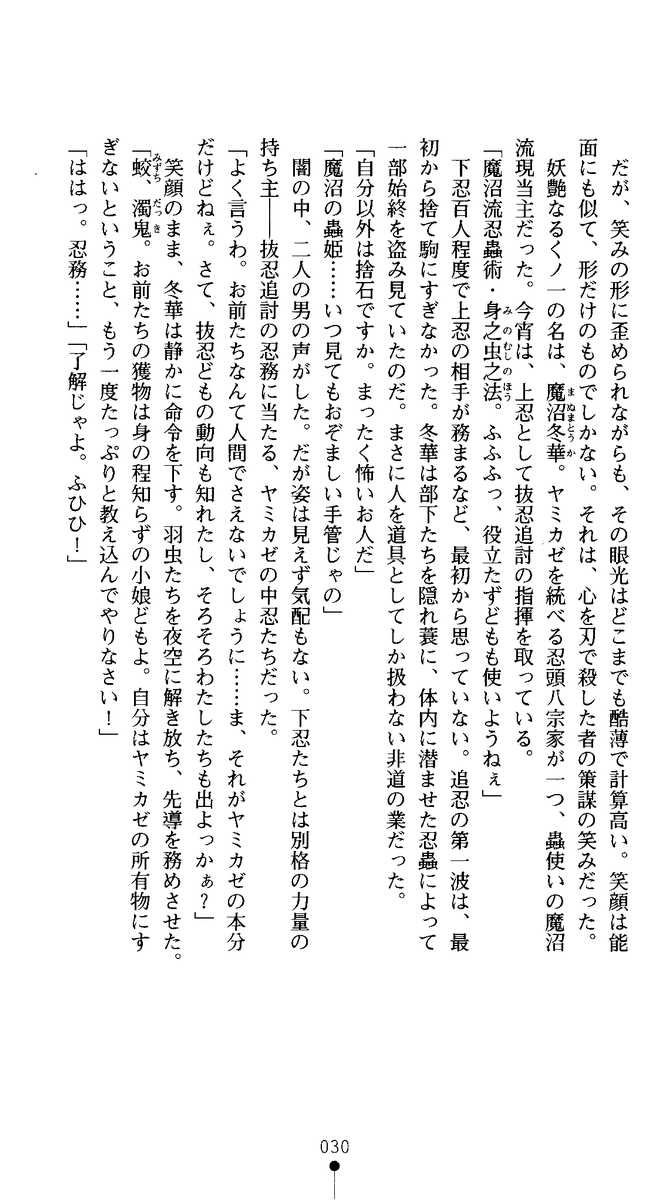 だが、笑みの形に歪められながらも、その眼光はどこまでも酷薄で計算高い。笑顔は能
面にも似て、形だけのものでしかない。それは、心を刃で殺した者の策謀の笑みだった。
妖艶なるくノ一の名は、魔沼冬華。ヤミカゼを統べる忍頭八宗家が一つ、蟲使いの魔沼
流現当主だった。今宵は、上忍として抜忍追討の指揮を取っている。
「魔沼流忍蟲術・身之虫之法。ふふふっ、役立たずどもも使いようねぇ」
下忍百人程度で上忍の相手が務まるなど、最初から思っていない。追忍の第一波は、最
初から捨て駒にすぎなかった。冬華は部下たちを隠れ蓑に、体内に潜ませた忍蟲によって
一部始終を盗み見ていたのだ。まさに人を道具としてしか扱わない非道の業だった。
「自分以外は捨石ですか。まったく怖いお人だ」
「魔沼の蟲姫……いつ見てもおぞましい手管じゃの」
闇の中、二人の男の声がした。だが姿は見えず気配もない。下忍たちとは別格の力量の
持ち主――抜忍追討の忍務に当たる、ヤミカゼの中忍たちだった。
「よく言うわ。お前たちなんて人間でさえないでしょうに……ま、それがヤミカゼの本分
だけどねぇ。さて、抜忍どもの動向も知れたし、そろそろわたしたちも出よっかぁ？」
笑顔のまま、冬華は静かに命令を下す。羽虫たちを夜空に解き放ち、先導を務めさせた。
「蛟、濁鬼。お前たちの獲物は身の程知らずの小娘どもよ。自分はヤミカゼの所有物にす
ぎないということ、もう一度たっぷりと教え込んでやりなさい！」
「ははっ。忍務……」「了解じゃよ。ふひひ！」
030